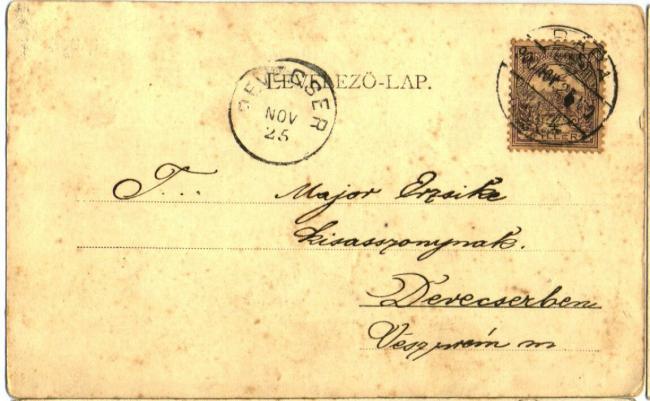 LEVELEZŐ-LAP.
DEVECSER
NOV
25
T...
Major Erzsike
kisasszonynak.
Devecserben
Veszprém m